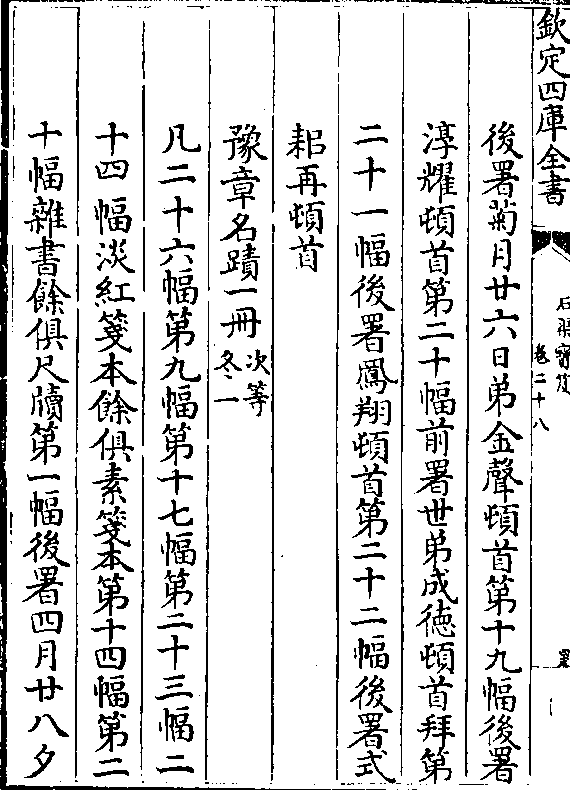 欽定四庫全書
石渠寶笈
卷二十八
後署菊月廿六日弟金聲頓首第十九幅後署
淳耀頓首第二十幅前署世弟成德頓首拜第
二十一幅後署鳳翔頓首第二十二幅後署式
耜再頓首
豫章名蹟一冊次等
冬一
凡二十六幅第九幅第十七幅第二十三幅二
十四幅淡紅箋本餘俱素箋本第十四幅第二
十幅雜書餘俱尺牘第一幅後署四月廿八夕